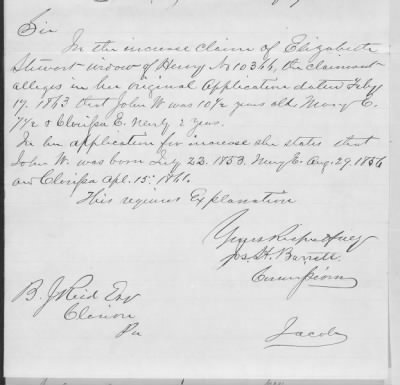 Sir
In the increase claim of Elizabeth
Stewart widow of Henry No 10366, the claimant
alleges in her original Application dated Feby
17. 1863 that John W. was 10½ years old Mary E.
7½ & Clorissa E. nearly 2 years.
In an application for increase she states that
John W. was born July 23. 1853. Mary E. Aug. 29. 1856
and Clorissa Apl. 15th 1861.
This requires Explanation
Yours Respectfully
Jos. H. Barrett
Commissioner
B. J. Reid Esq
Clarion
Pa
Jacobs